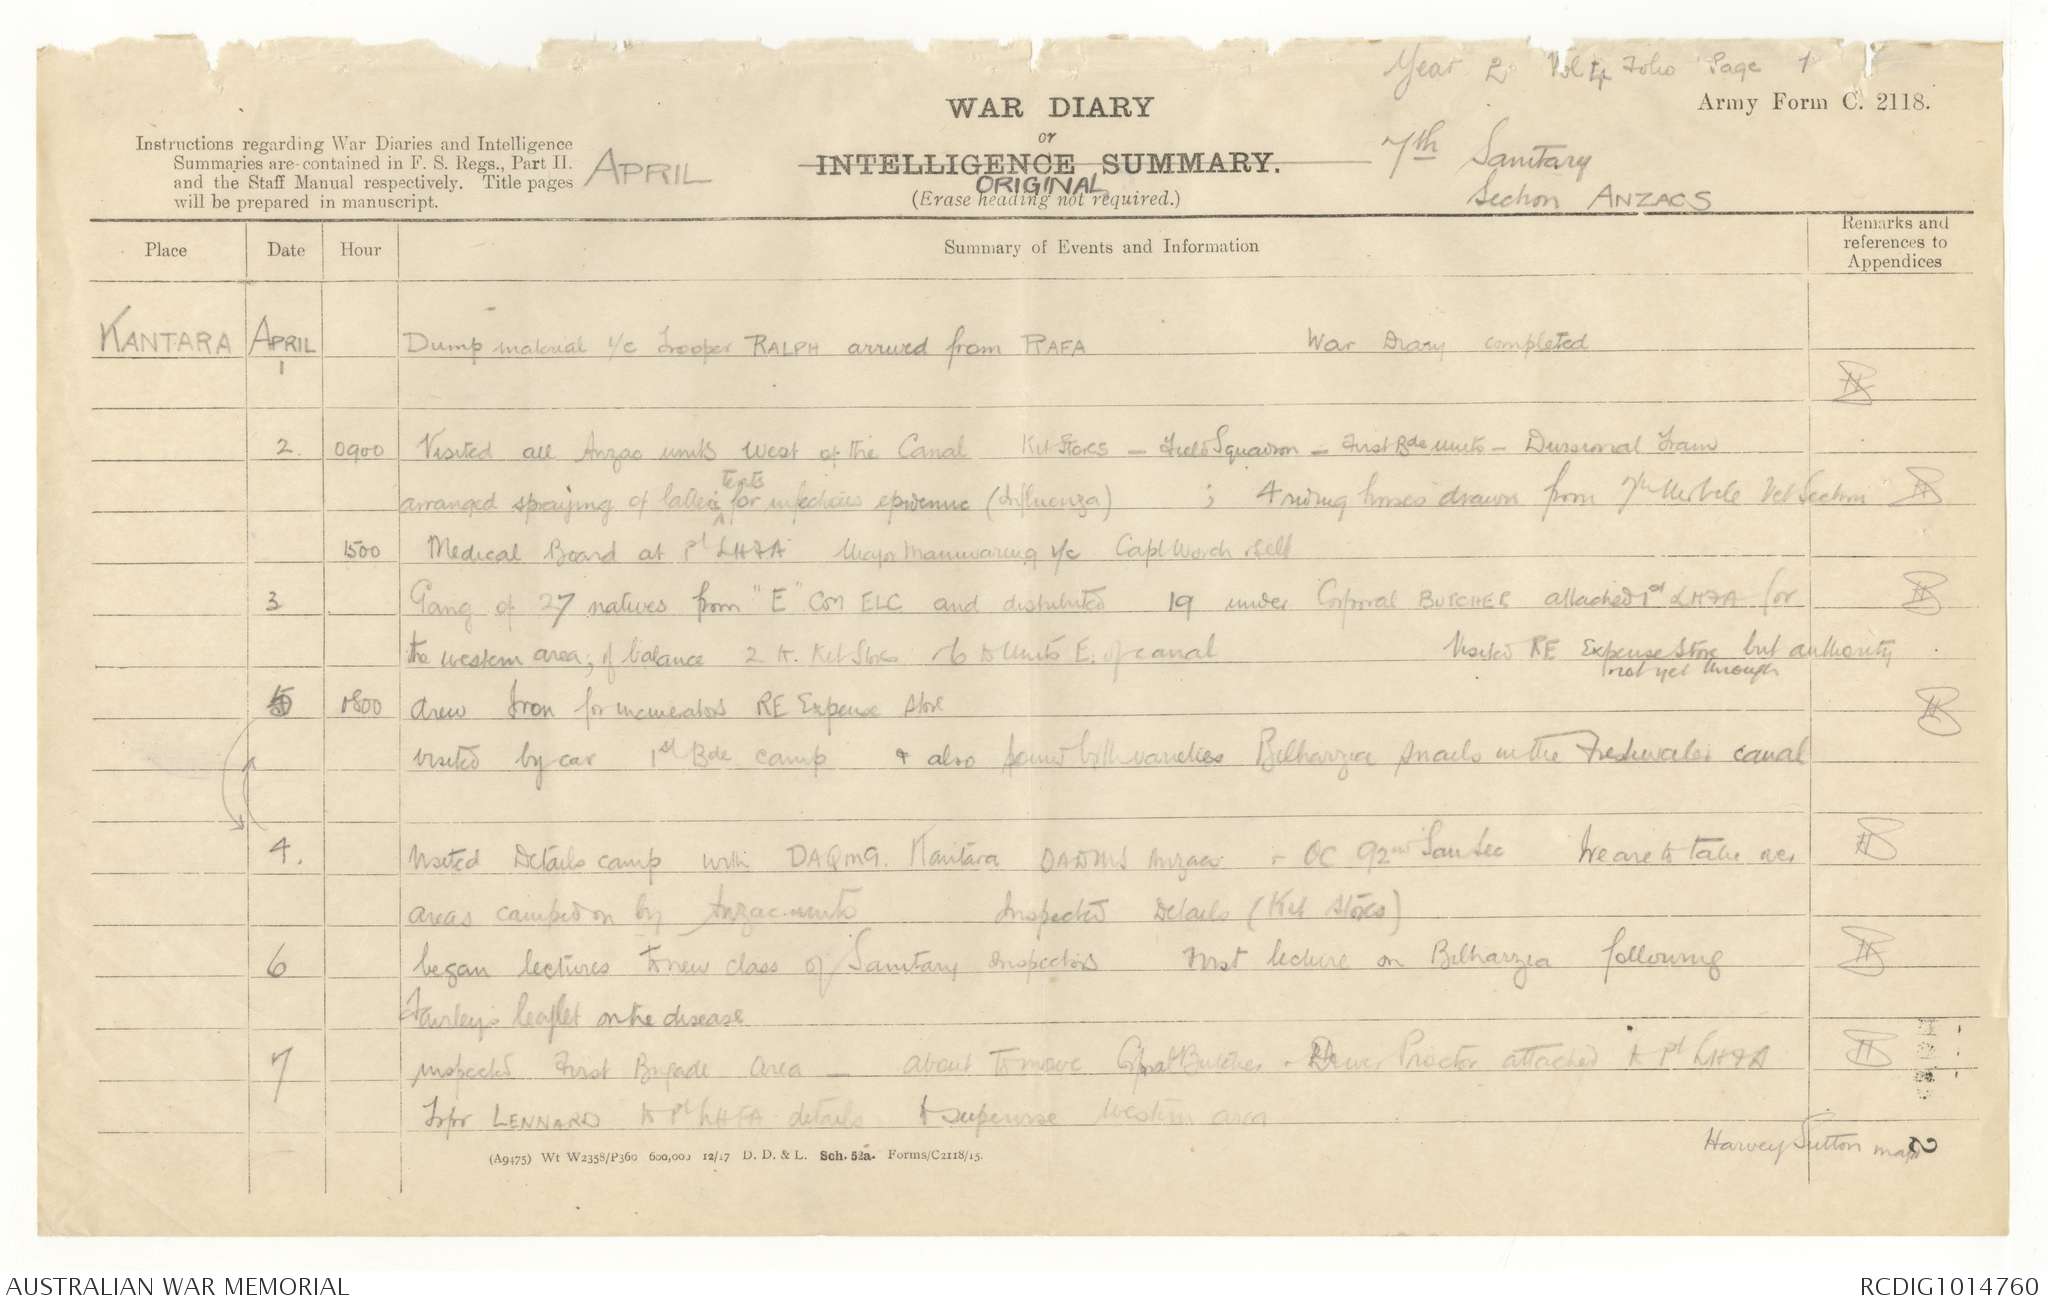 Year 2 Vol 4 Folio Page 1
Army Form C. 2118.
WAR DIARY
or
INTELLIGENCE SUMMARY.
ORIGINAL
(Erase heading not required.)
Instructions regarding War Diaries and Intelligence
Summaries are contained in F. S. Regs., Part II.
and the Staff Manual respectively. Title pages
will be prepared in manuscript.
APRIL
7th Sanitary
Section ANZACS
Place Date Hour Summary of Events and Information Remarks and references to Appendices
KANTARA APRIL 1 Dump material i/c Trooper RALPH arrived from RAFA War Diary completed
2. 0900 Visited all Anzac units West of the Canal Kit Stores – Field Squadron – First Bde units – Divisional Train
arranged spraying of tents for infectious epidemic (Influenza) ; 4 riding horses drawn from 7th Mobile Vet Section
1500 Medical Board at 1st LHFA Major Mainwaring i/c Capt Worch self
3 Gang of 27 natives from "E" Coy ELC and distributed 19 under Corporal BUTCHER attached 1st LHFA for
the western area; of balance 2 to Kit Stores 6 to Units E. of canal Visited RE Expense Store but authority
not yet through
5 1800 drew Iron for incinerators RE Expense Store
visited by car 1st Bde camp & also found both varieties Bilharzia snails in the Freshwater canal
4. Visited Details camp with DAQMG. Kantara DADMS Anzac + OC 92nd San Sec We are to take over
areas camped on by Anzac units Inspected Details (Kit Stores)
6 began lectures to new class of Sanitary Inspectors First lecture on Bilharzia following
Fairley's leaflet on the disease
7 inspected First Brigade Area – about to move Corporal Butcher + Driver Proctor attached to 1st LHFA
Tpr LENNARD to 1st LHFA details to supervise Western area
Harvey Sutton major
2
(A9475) Wt W2358/P360 600,000 12/17 D. D. & L. Sch. 52a. Forms/C2118/15.
AUSTRALIAN WAR MEMORIAL
RCDIG1014760